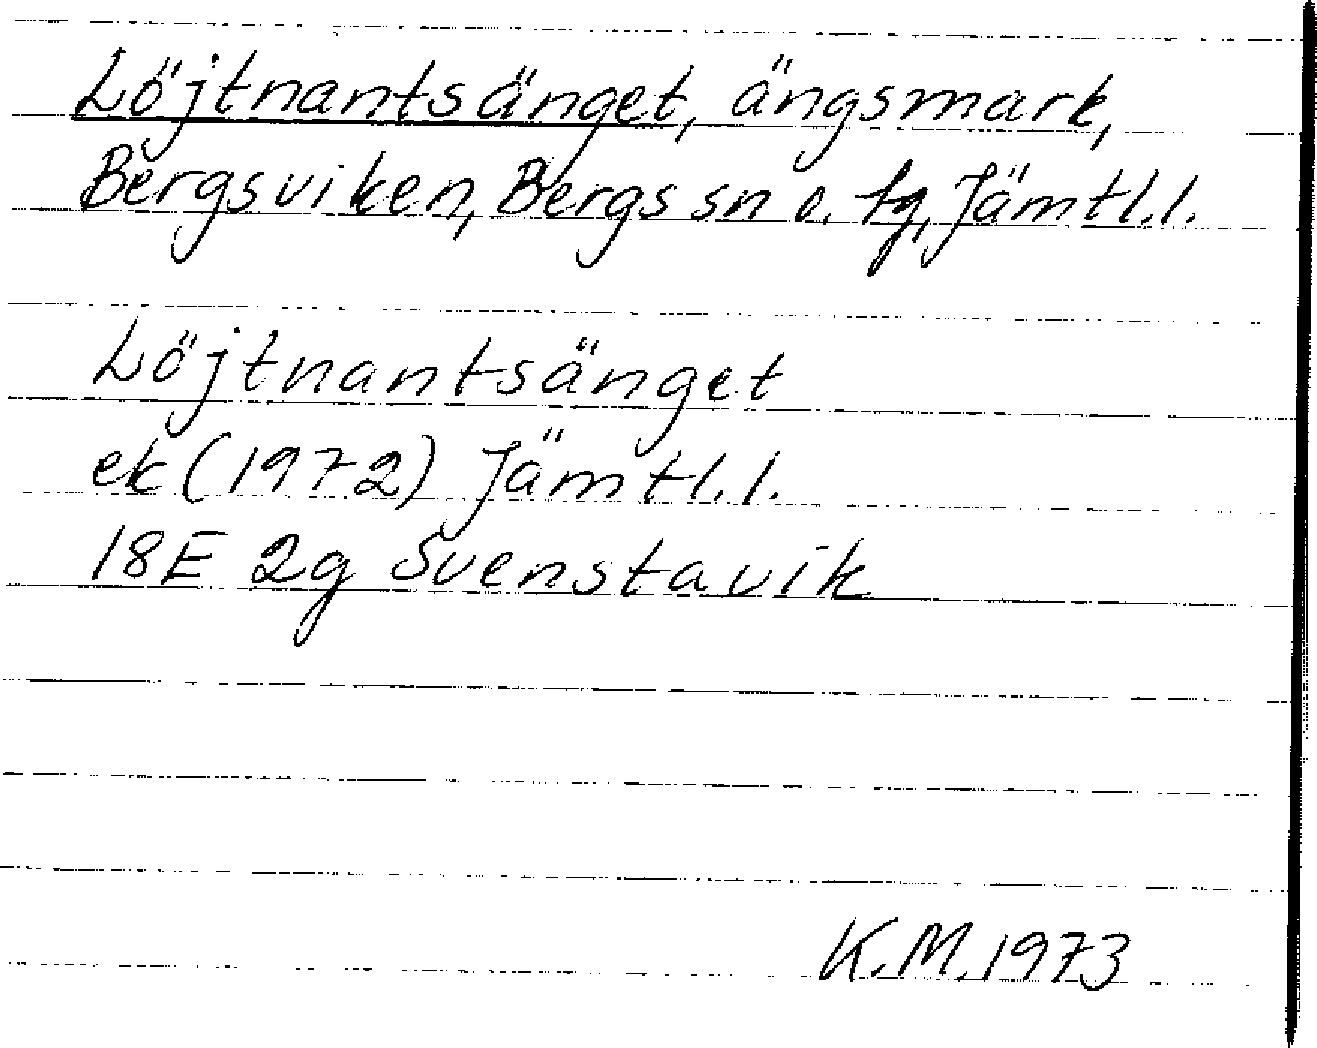 Löjtnantsänget, ängsmark,
Bergsviken, Bergs sn o. tg, Jämtl.l.
Löjtnantsänget
ek (1972) Jämtl.l.
18E 2g Svenstavik
K.M. 1973